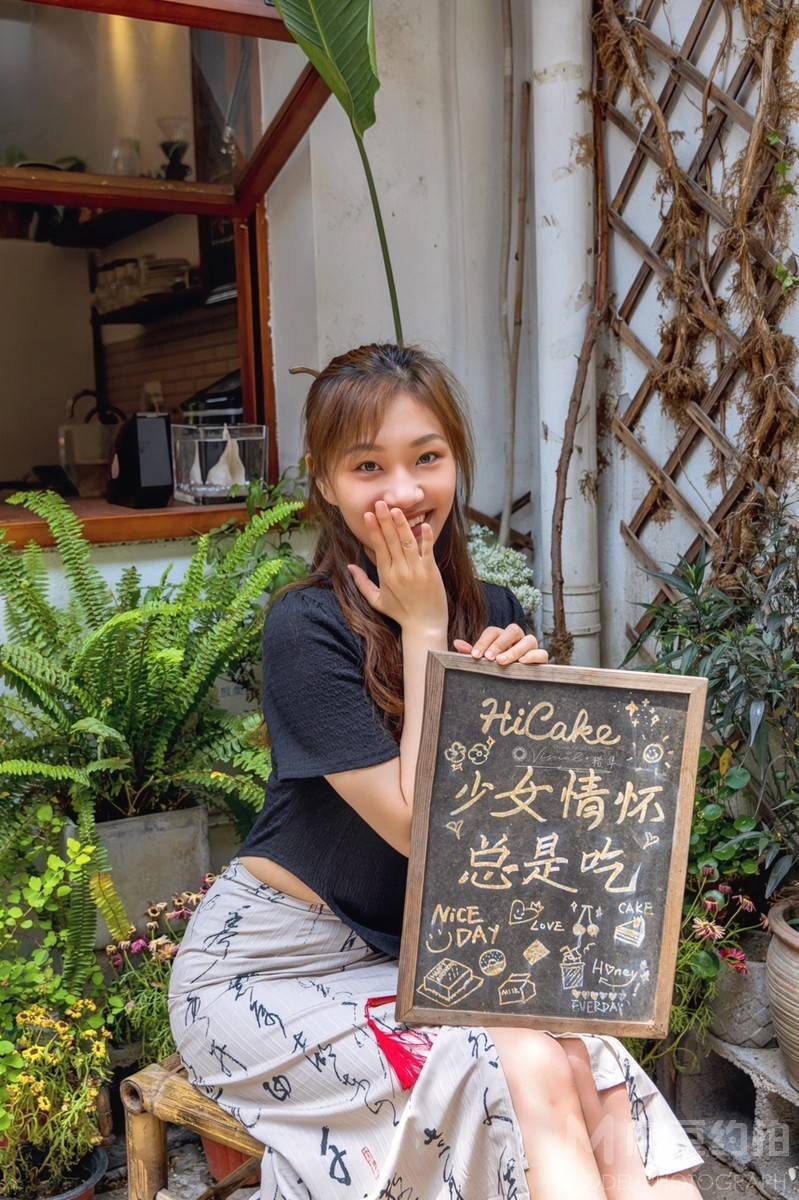 HiCake
少女情怀
总是吃
NiCE
DAY
LOVE
CAKE
Honey
MILK
EVERDAY